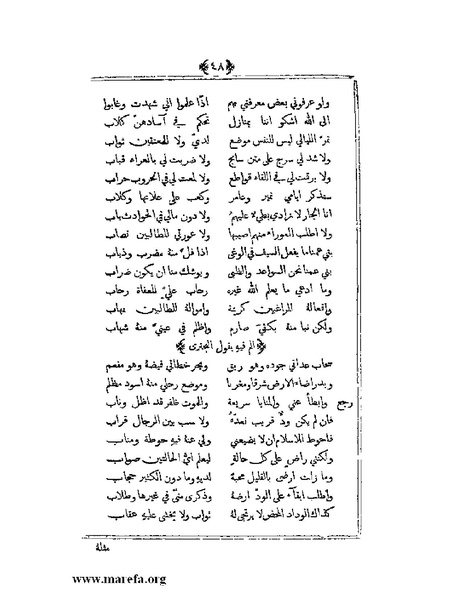 ﴿٤٨﴾
ولو عرفوني بعض معرفتي بهم اذًا علموا اني شهدت وغابوا
الى الله اشكو اننا بمنازل تحكم في آسادهنّ كلاب
تمرّ الليالي ليس للنفس موضع لديّ ولا للمعتفين ثواب
ولا شد لي سرج على متن سابح ولا ضربت لي بالعراء قباب
ولا برقت لي في اللقاء قواطع ولا لمعت لي في الحروب حراب
ستذكر ايامي نمير وعامر وكعب على علاتها وكلاب
انا الجار لا زادي بطيء عليهم ولا دون مالي في الحوادث باب
ولا اطلب العوراء منهم اصيبها ولا عورتي للطالبين تصاب
بني عمنا ما يفعل السيف في الوغى اذا فلّ منهُ مضرب وذباب
بني عمنا نحن السواعد والظبى ويوشك منا ان يكون ضراب
وما ادعي ما يعلم الله غيره رحاب عليّ للعفاة رحاب
وافعالهُ للراغبين كريمة واموالهُ للطالبين نهاب
ولكن نبا منهُ بكفّي صارم واظلم في عينيّ منهُ شهاب
﴿الم فيهِ بقول البحتري﴾
سحاب عداني جوده وهو ريق وبحر خطاني فيضهُ وهو مفعم
وبدر اضاء الارض شرقا ومغربا وموضع رحلي منهُ اسود مظلم
رجع وابطأ عني والمنايا سريعة والموت ظفر قد اظل وناب
فان لم يكن ودّ قريب نعدّهُ ولا سبب بين الرجال قراب
فاحوط للاسلام ان لا يضيعني ولي عنهُ فيهِ حوطة ومناب
ولكنني راض على كل حالة ليعلم ايّ الحالتين صواب
وما زلت ارضى بالقليل محبة لديهِ وما دون الكثير حجاب
واطلب ابقآء على الودّ ارضهُ وذكرى منّي في غيرها وطلاب
كذاك الوداد المحض لا يرتجى لهُ ثواب ولا يخشى عليهِ عقاب
مثلهُ
www.marefa.org